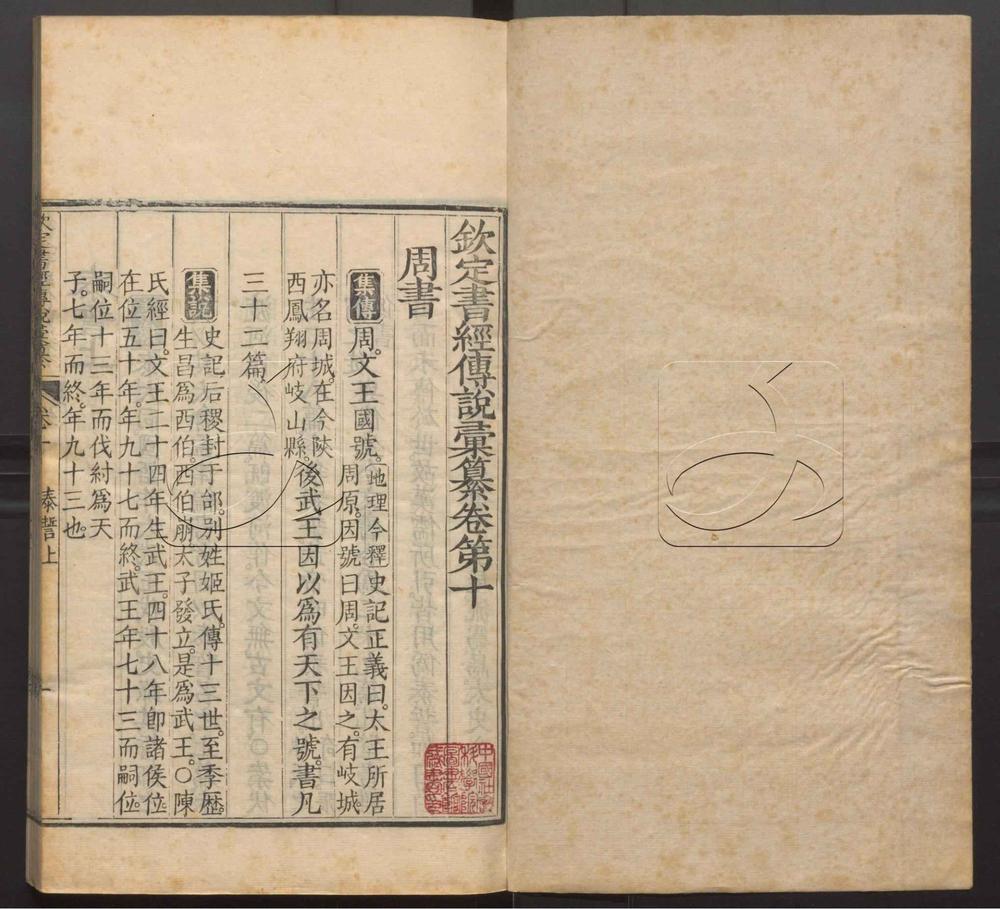 欽定書經傳說彙纂卷第十
周書
集傳 周。文王國號。地理今釋史記正義曰。太王所居
周原。因號曰周。文王因之。有岐城
亦名周城。在今陝
西鳳翔府岐山縣。後武王因以爲有天下之號。書凡
三十二篇。
集說 史記后稷封于邰。別姓姬氏。傳十三世。至季歷。
生昌爲西伯。西伯崩。太子發立。是爲武王。○陳
氏經曰。文王二十四年生武王。四十八年卽諸侯位
在位五十年。年九十七而終。武王年七十三而嗣位。
嗣位十三年而伐紂爲天
子。七年而終。年九十三也。
欽定書經傳說彙纂 卷十 泰誓上 一
中國社會科學院